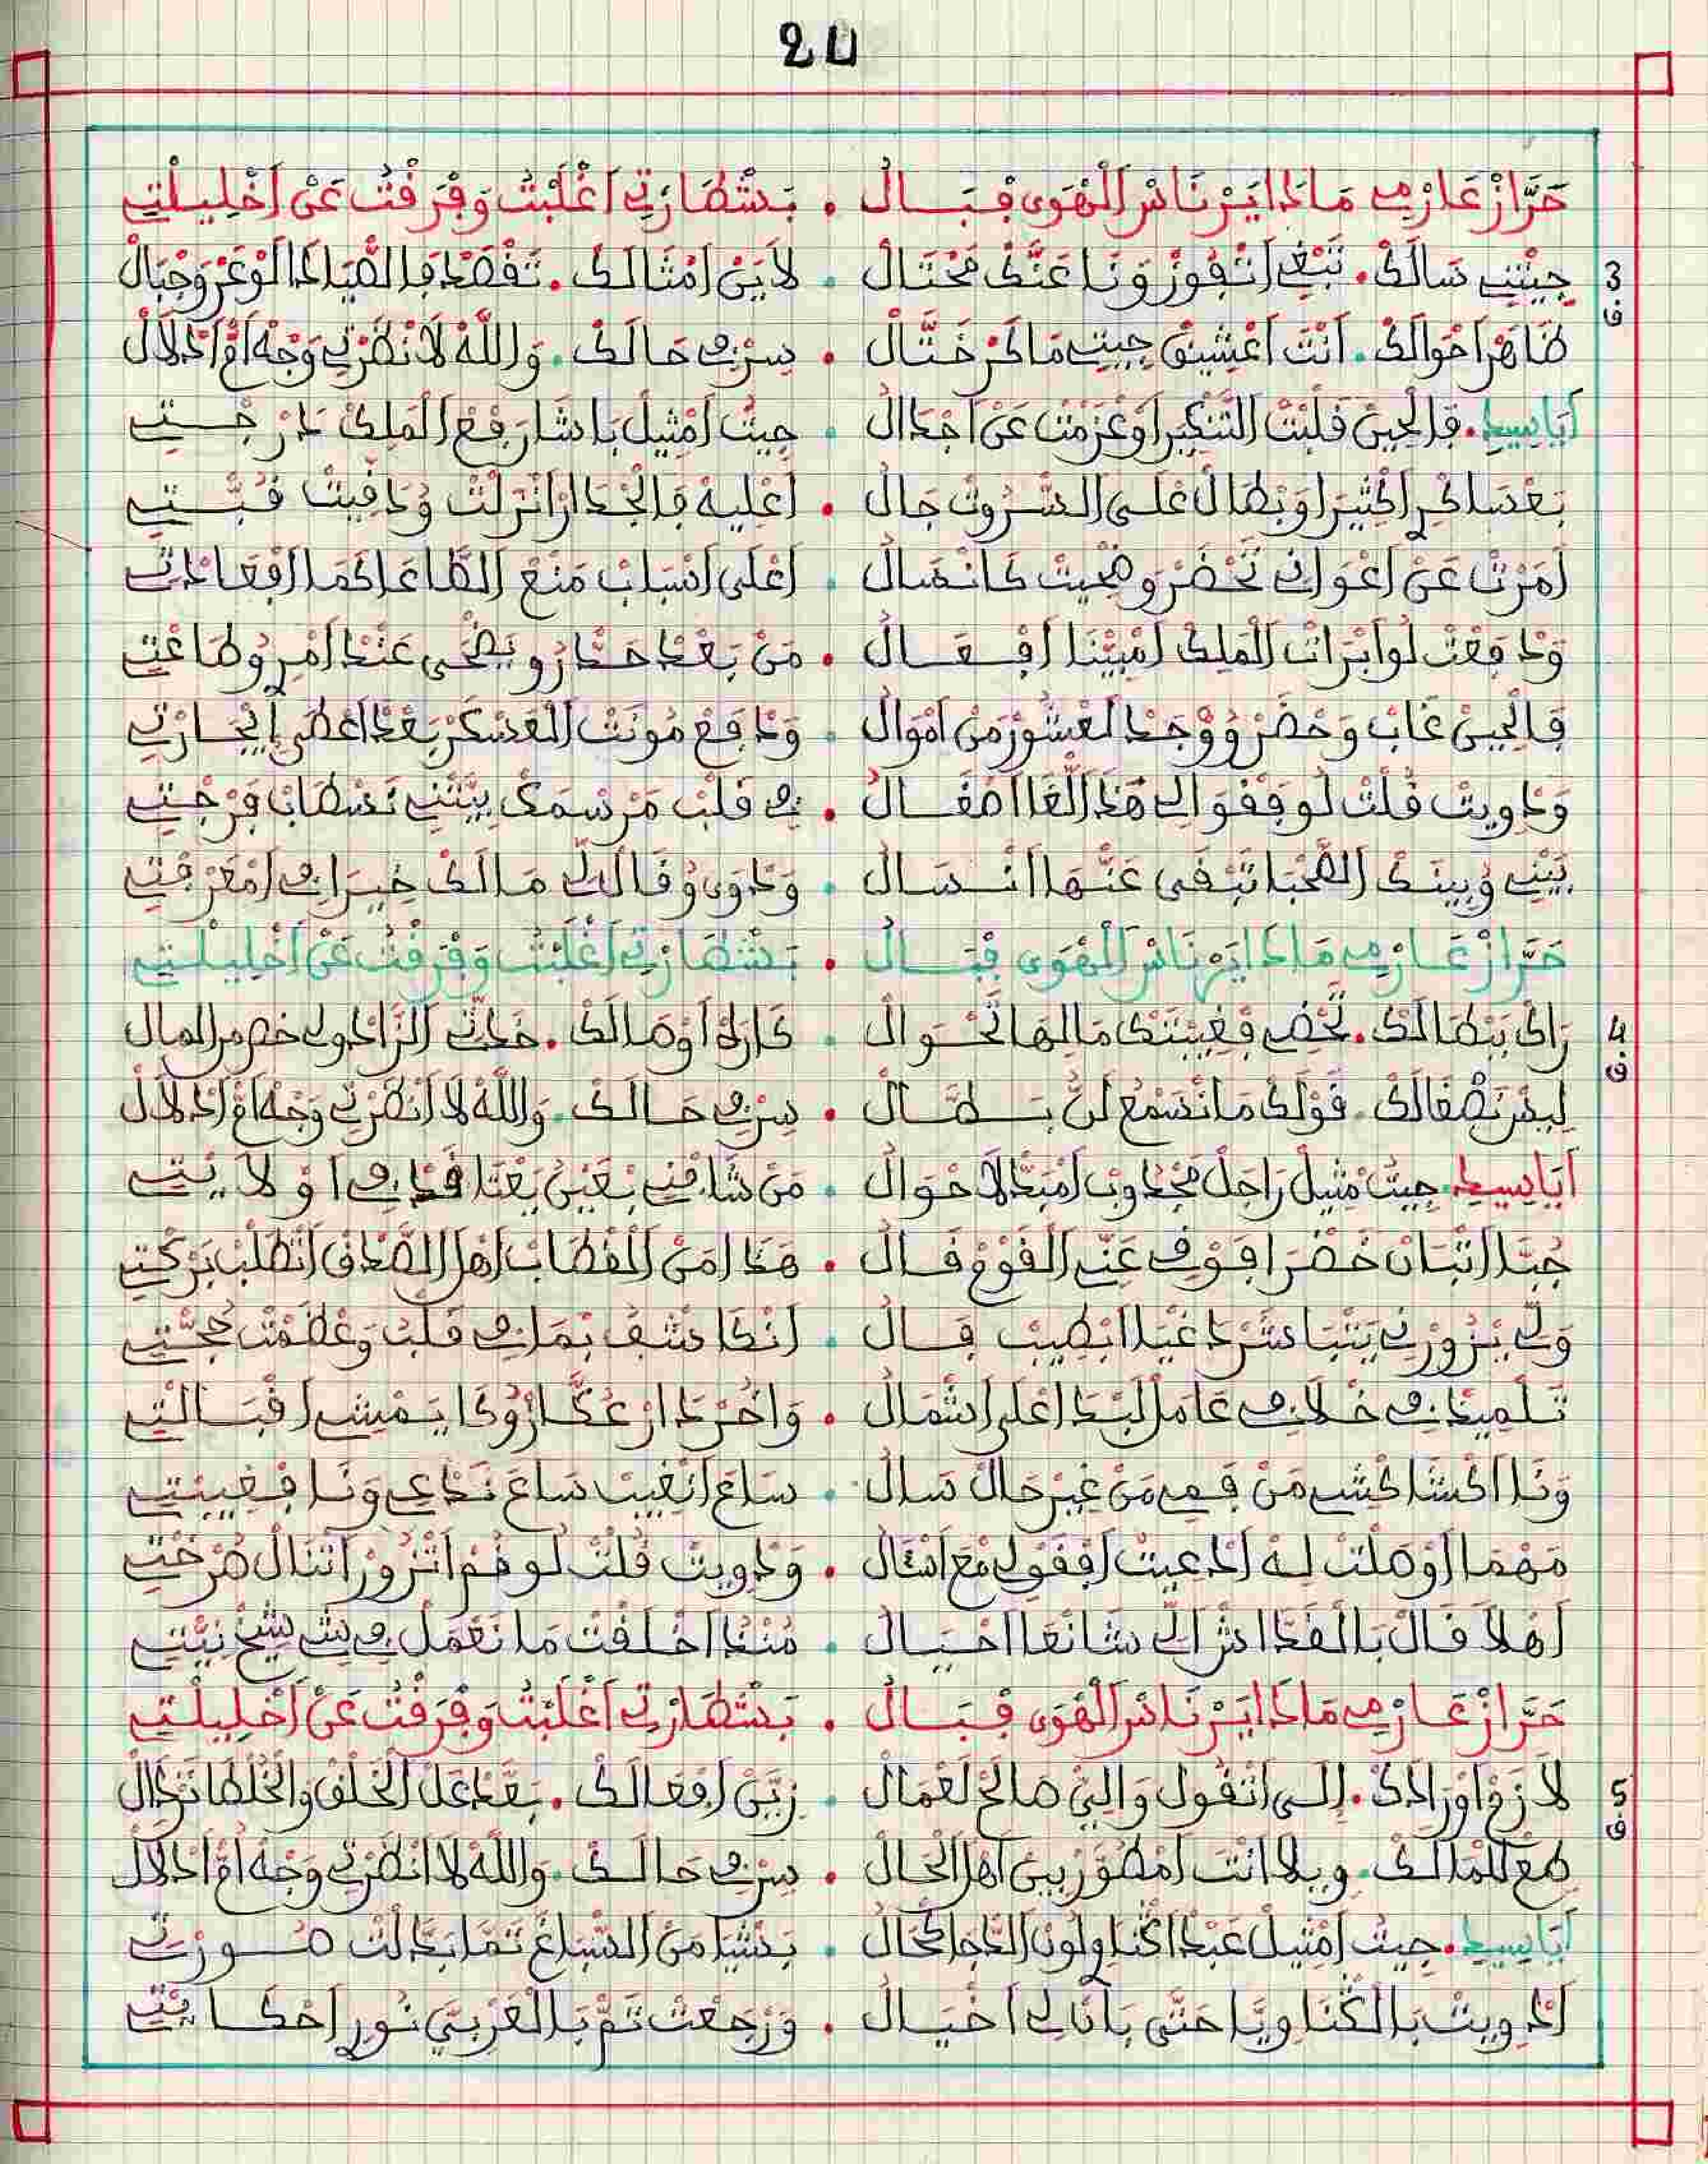 20
حَرَّازْ عَارْمِي مَاذَا ايَرْ نَاسْ الْهْوَى فْبَالُ • بَشْطَارْتِي اغْلَبْتُ وَفْرَقْتُ عَنْ اخْلِيلْتِي
3 جِيتْنِي سَالَكْ • تَبْغِي اتْفُوزْ وَنَا عَنَّكْ مُحْتَالْ • لَا يَنْ امْثَالَكْ • تَقْصَدْ فَالصْيَادَا الْوْعَرْ وَجْبَالْ
ف ظَاهَرْ احْوَالَكْ • أَنْتَ اعْشِيقْ جِيتِ مَاكَرْ خَتَّالْ • سِرْ فِي حَالَكْ • وَاللَّهْ لَا نْظَرْتِي وَجْهْ امّْ ادْلَالْ
أَيَا سِيدِي • فَالْحِينْ قَلْتْ النْكِيرْ اوْعْزَمْتْ عَنْ اجْدَالْ • جِيتُ امْثِيلْ بَاشَا رَفْعْ الْمَلِكْ دَرْجْتِي
بَعْسَاكْرِ اكْثِيرَا وَبْطَالْ عْلَى السُّرُوتْ جَالْ • اعْلِيهْ فَالْجْدَارْ انْزَلْتْ وُدَقِّيتْ قُبَّتِي
أَمَرْتْ عَنْ اعْوَانِي تَحْضَرْ وضْحِيتْ كَانْسَالْ • اعْلَى اسْبَابْ مَنْعْ الطَّاعَا كمَا افْعَادْتِي
وَدْفَعْتْ لُو ابْرَاتْ الْمَلِكْ امْبَيّْنَا افْعَالْ • مَنْ بَعْدْ حَدّْرُو يَضْحَى عَنْدْ امْرِ وُطَاعْتِي
فَالْحِينْ غَابْ وَحْضَرْ وُوْجَدْ لَعْشُورْ مَنْ امْوَالْ • وَدْفَعْ مُونْتْ الْعَسْكَرْ بَعْدْ اعْطَى إِيجَارْتِي
وَدْوِيتْ قُلْتْ لُو قِفُو الِي هَذَا الْغَا اصْغَالُ • فِي قَلْبْ مَرْسْمَكْ بِيّتْنِي تَسْطَابْ فَرْجْتِي
بَيْنِي وُبِينَكْ الصُّحْبَا تَبْقَى عَنْهَا انْسَالْ • وَدْوَى وُقَالْ لِّي مَالَكْ خِيرَا فِي امْعَرْفْتِي
حَرَّازْ عَارْمِي مَاذَا ايَرْ نَاسْ الْهْوَى فْبَالُ • بَشْطَارْتِي اغْلَبْتُ وَفْرَقْتُ عَنْ اخْلِيلْتِي
4 رَاكْ بَبْطَالَكْ • تَحْضِي فْغِيبْتَكْ مَالِهَا تَحْوَالْ • كَارَاهْ اوْصَالَكْ • خَلّتِي الزَّادْ ولي خصم من المال
ف لِيسْ نَصْغَالَكْ • قَوْلَكْ مَا نْسَمْعُ لَنْ بَطَّالْ • سِرْ فِي حَالَكْ • وَاللَّهْ لَا انْظَرْتِي وَجْهْ امّْ ادْلَالْ
أَيَا سِيدِي • جِيتُ مْثِيلْ رَاجَلْ مَجْدُوبْ امْبَدّْلْ الَاحْوَالْ • مَنْ شَافْنِي بْعَيْنُ بَغْتَا قَدَّامِي اوْلَايْتِي
جُبَّا التّبَانْ خَضْرَا فَوْقِي عَنِّي الْقَوْمْ قَالْ • هَذَا امَنْ الْقْطَابْ اهْلْ الصَّدْقْ انْطَلْبْ بَرْكْتِي
وَلِّي يْزُورْنِي يَتْبَاشَرْ دَغْيَا ايْطِيبْ فَالْ • انْكَاشْفُ بْمَا فِي قَلْبُ وَعْظَمْتْ حُجّْتِي
تَلْمِيدْ فِي خْلَافِي عَامَلْ لَبْدَا اعْلَى اشْمَالْ • وَاخُرْ دَارْ عُكَّازُو كَا يَمْشِي اقْبَالْتِي
وَنَا اكْشَاكْشِي مَنْ فَمِّي مَنْ غِيرْ حَالْ سَالْ • سَاعَ انْغِيبْ سَاعَ نَدْعِي وَنَا فْغِيبْتِي
مَهْمَا اوْصَلْتْ لِهْ ادْعِيتْ اقْفُولِي مْعَ اسْتَالْ • وَدْوِيتْ قُلْتْ لُو قُمْ اتْزُورْ اتْنَالْ صَرْخْتِي
أَهْلَا قَالْ بَالْقْدَا اشْ الِّي شَانْعَا احْيَالْ • مُنْدْ اخْلَقْتْ مَا نَعْمَلْ فِي شِي شِيخْ نِيّتِي
حَرَّازْ عَارْمِي مَاذَا ايَرْ نَاسْ الْهْوَى فْبَالُ • بَشْطَارْتِي اغْلَبْتُ وَفْرَقْتُ عَنْ اخْلِيلْتِي
5 لَازَمْ اوْرَادَكْ • إِلَى اتْقُولْ وَالِي صَالَحْ لَعْمَالْ • زِيّنْ افْعَالَكْ • بَعَّدْ عَلْ الْخَلْقْ وَالْخُلْطَا تَرْدَالْ
ف طَمْعْ لَلْمَالَكْ • وِيلَا انْتَ امْطَوَّرْ بِينْ اهْلْ الْحَالْ • سِرْ فِي حَالَكْ • وَاللَّهْ لَا انْظَرْتِي وَجْهْ امّْ ادْلَالْ
أَيَا سِيدِي • جِيتُ امْثِيلْ عَبْدْ اكْنَاوِي لُونْ الدّْجَا كْحَالْ • بَدْشِيَا مَنْ السَّبَاغْ تَمَا بَدَّالْتْ صُورْتِي
ادْوِيتْ بَالْكْنَاوِيَّا حَتَّى بَانْ لِي اخْيَالْ • وَرْجَعْتْ تَمّْ بَالْعَرْبِيَّ نُورِي احْكَايْتِي